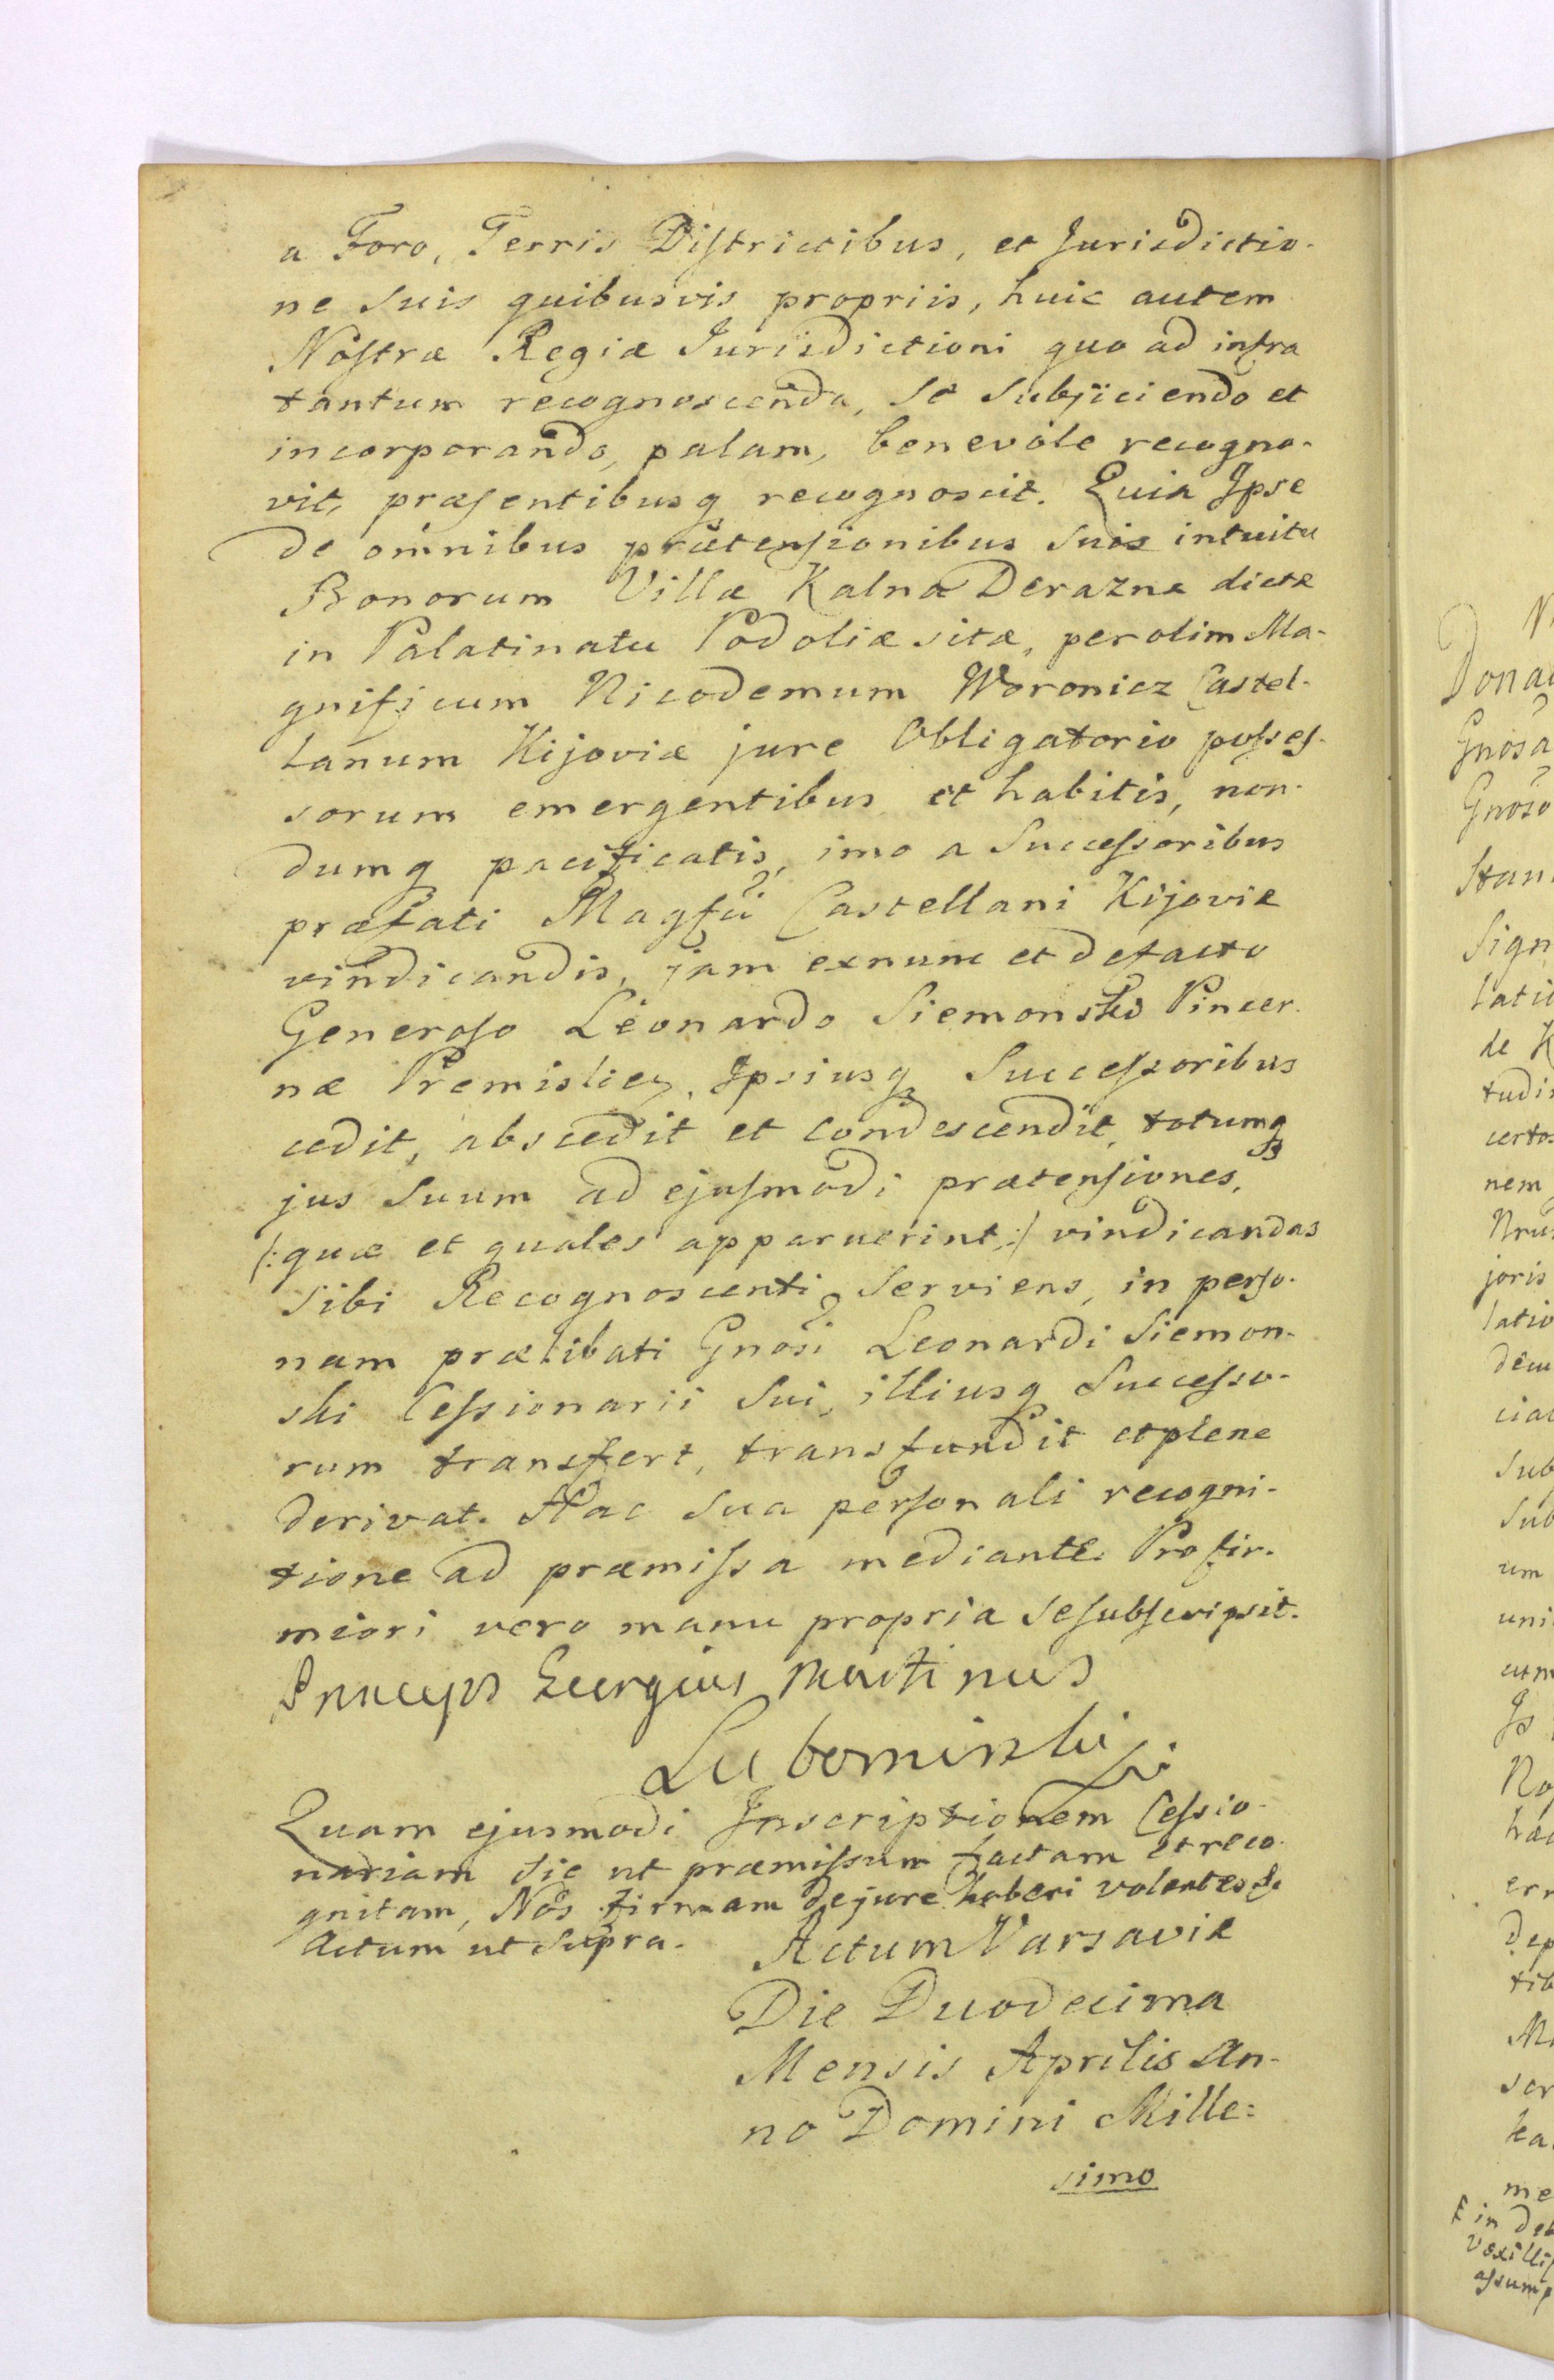 a Foro, Terris Districtibus, et Jurisdictio-
ne Suis quibusvis propriis, huic autem
Nostræ Regiæ Jurisdictioni quo ad infra
tantum recognoscenda, se Subjiciendo et
incorporando, palam, benevole recogno-
vit, præsentibusq recognoscit. Quia Ipse
de omnibus prætensionibus suis intuitu
Bonorum Villæ Kalna Derazna dictæ
in Palatinatu Podoliæ sitæ, per olim Ma-
gnificum Nicodemum Woronicz Castel-
lanum Kijoviæ jure Obligatorio posses-
sorum emergentibus et habitis, non-
dumq pacificatis, imo a Successoribus
præfati Magfci Castellani Kijoviæ
vindicandis, jam exnunc et defacto
Generoso Leonardo Siemonski Pincer-
næ Premisliens, Ipsiusq Successoribus
cedit, abscedit et condescendit, totumq
jus Suum ad ejusmodi prætensiones,
(: quæ et quales apparuerint :) vindicandas
Sibi Recognoscenti Serviens, in perso-
nam prælibati Gnosi Leonardi Siemon-
ski Cessionarii Sui, illiusq Successo-
rum transfert, transfundit et plene
derivat. Hac Sua personali recogni-
tione ad præmissa mediante. Pro fir-
miori vero manu propria se subscripsit.
Princeps Georgius Martinus
Lubomirski
Quam ejusmodi Inscriptionem Cessio-
nariam Sic ut præmissum factam et reco-
gnitam, Nos firmam de jure haberi volentes &
Actum ut Supra. Actum Varsaviæ
Die Duodecima
Mensis Aprilis An-
no Domini Mille:
simo
Donat
Gnosa
Gnoso
Stani
Sign
de K
certo
nem
joris
latio
um
uni
Mi
ka
me
in deb
vexilli
assump